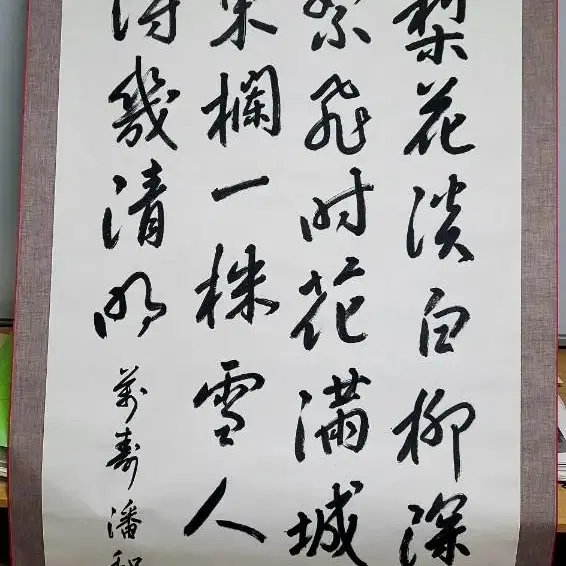 梨花淡白柳深
絮飛时花滿城
東欄一株雪人
得幾清明
萬壽潘